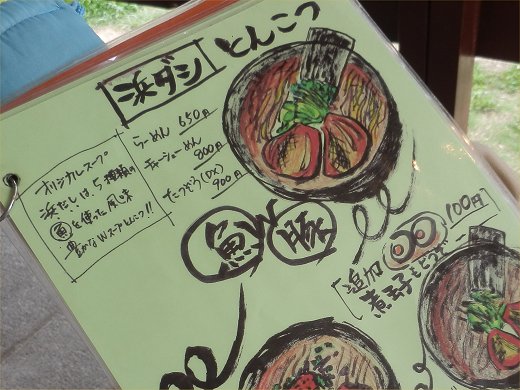 浜ダシ とんこつ
らーめん 650円
チャーシューめん 800円
たつぞう(DX) 900円
オリジナルスープ
浜だしは、5種類の
魚を使った風味
豊かなWスープとんこつ!!
魚W豚
100円
追加
煮玉子もどうぞ